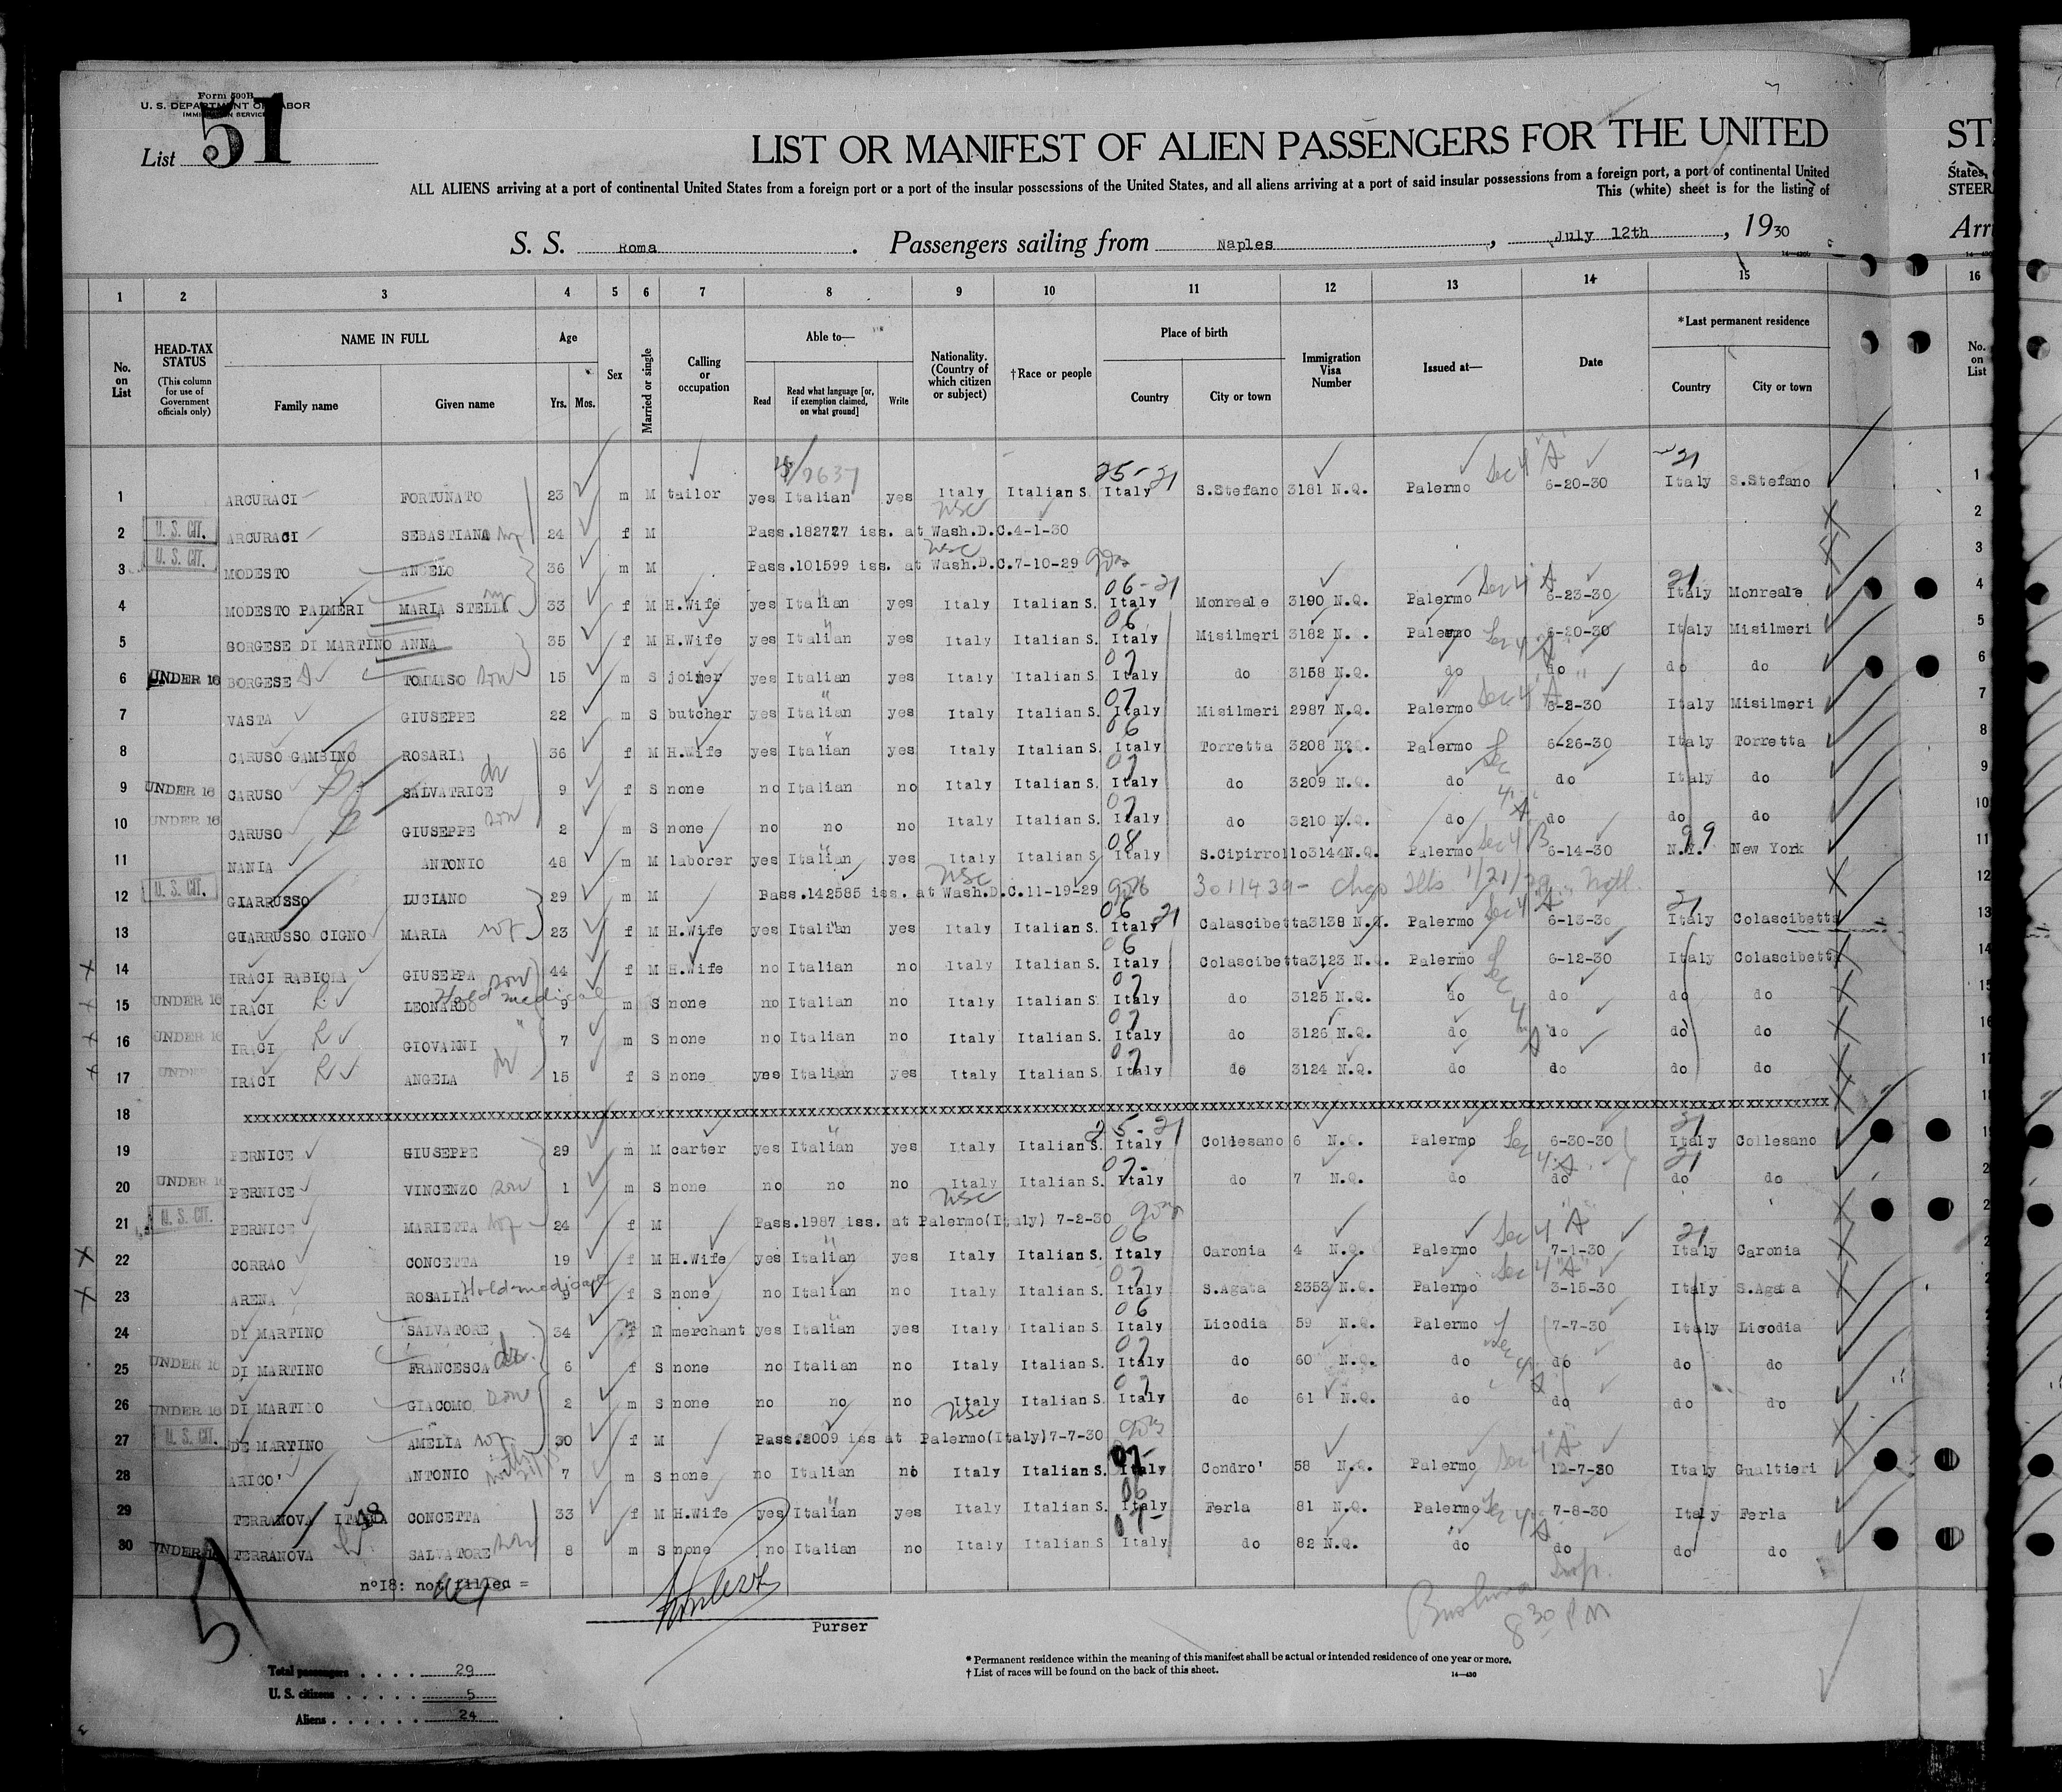 Form 500B
U. S. DEPARTMENT OF LABOR
IMMIGRATION SERVICE
List 51
LIST OR MANIFEST OF ALIEN PASSENGERS FOR THE UNITED
ALL ALIENS arriving at a port of continental United States from a foreign port or a port of the insular possessions of the United States, and all aliens arriving at a port of said insular possessions from a foreign port, a port of continental United
This (white) sheet is for the listing of
S. S. Roma. Passengers sailing from Naples, July 12th, 1930
1 2 3 4 5 6 7 8 9 10 11 12 13 14 15
No. on List
HEAD-TAX STATUS
(This column for use of Government officials only)
NAME IN FULL
Family name Given name
Age
Yrs. Mos.
Sex
Married or single
Calling or occupation
Able to—
Read
Read what language [or, if exemption claimed, on what ground]
Write
Nationality. (Country of which citizen or subject)
†Race or people
Place of birth
Country City or town
Immigration Visa Number
Issued at—
Date
*Last permanent residence
Country City or town
1 ARCURACI FORTUNATO 23 m M tailor yes Italian yes Italy Italian S. Italy S.Stefano 3181 N.Q. Palermo Sec 4 "A" 6-20-30 Italy S.Stefano
2 U. S. CIT. ARCURACI SEBASTIANA 24 f M Pass.182727 iss. at Wash.D.C.4-1-30
3 U. S. CIT. MODESTO ANGELO 36 m M Pass.101599 iss. at Wash.D.C.7-10-29
4 MODESTO PALMERI MARIA STELLA 33 f M H.Wife yes Italian yes Italy Italian S. Italy Monreale 3190 N.Q. Palermo Sec 4 A 6-23-30 Italy Monreale
5 BORGESE DI MARTINO ANNA 35 f M H.Wife yes Italian yes Italy Italian S. Italy Misilmeri 3182 N.Q. Palermo 6-20-30 Italy Misilmeri
6 UNDER 16 BORGESE TOMMASO son 15 m S joiner yes Italian yes Italy Italian S. Italy do 3158 N.Q. do do do do
7 VASTA GIUSEPPE 22 m S butcher yes Italian yes Italy Italian S. Italy Misilmeri 2987 N.Q. Palermo Sec 4 "A" 6-2-30 Italy Misilmeri
8 CARUSO GAMBINO ROSARIA 36 f M H.Wife yes Italian yes Italy Italian S. Italy Torretta 3208 N.Q. Palermo 6-26-30 Italy Torretta
9 UNDER 16 CARUSO SALVATRICE 9 f S none no Italian no Italy Italian S. Italy do 3209 N.Q. do do Italy do
10 UNDER 16 CARUSO GIUSEPPE son 2 m S none no no no Italy Italian S. Italy do 3210 N.Q. do do do do
11 NANIA ANTONIO 48 m M laborer yes Italian yes Italy Italian S. Italy S.Cipirrello 3144 N.Q. Palermo Sec 4 B 6-14-30 N.Y. New York
12 U. S. CIT. GIARRUSSO LUCIANO 29 m M Pass.142585 iss. at Wash.D.C.11-19-29
13 GIARRUSSO CIGNO MARIA 23 f M H.Wife yes Italian yes Italy Italian S. Italy Calascibetta 3138 N.Q. Palermo Sec 4 A 6-13-30 Italy Colascibetta
14 IRACI RABIOLA GIUSEPPA 44 f M H.Wife no Italian no Italy Italian S. Italy Colascibetta 3123 N.Q. Palermo 6-12-30 Italy Colascibetta
15 UNDER 16 IRACI LEONARDO son Hold medical 9 m S none no Italian no Italy Italian S. Italy do 3125 N.Q. do do do do
16 UNDER 16 IRACI GIOVANNI " 7 m S none no Italian no Italy Italian S. Italy do 3126 N.Q. do do do do
17 UNDER IRACI ANGELA 15 f S none yes Italian yes Italy Italian S. Italy do 3124 N.Q. do do do do
18 xxxxxxxxxxxxxxxxxxxxxxxxxxxxxxxxxxxxxxxxxxxxxxxx
19 PERNICE GIUSEPPE 29 m M carter yes Italian yes Italy Italian S. Italy Collesano 6 N.Q. Palermo 6-30-30 Italy Collesano
20 UNDER 16 PERNICE VINCENZO son 1 m S none no no no Italy Italian S. Italy do 7 N.Q. do do do do
21 U. S. CIT. PERNICE MARIETTA 24 f M Pass.1987 iss. at Palermo(Italy) 7-2-30
22 CORRAO CONCETTA 19 f M H.Wife yes Italian yes Italy Italian S. Italy Caronia 4 N.Q. Palermo Sec 4 "A" 7-1-30 Italy Caronia
23 ARENA ROSALIA Hold medical f S none no Italian no Italy Italian S. Italy S.Agata 2353 N.Q. Palermo Sec 4 "A" 3-15-30 Italy S.Agata
24 DI MARTINO SALVATORE 34 M merchant yes Italian yes Italy Italian S. Italy Licodia 59 N.Q. Palermo 7-7-30 Italy Licodia
25 UNDER 16 DI MARTINO FRANCESCA 6 f S none no Italian no Italy Italian S. Italy do 60 N.Q. do do do do
26 UNDER 16 DI MARTINO GIACOMO 2 m S none no no no Italy Italian S. Italy do 61 N.Q. do do do do
27 U. S. CIT. DE MARTINO AMELIA 30 f M Pass.2009 iss at Palermo(Italy)7-7-30
28 ARICO' ANTONIO 7 m S none no Italian no Italy Italian S. Italy Condro' 58 N.Q. Palermo Sec 4 "A" 12-7-30 Italy Gualtieri
29 TERRANOVA ITALIA CONCETTA 33 f M H.Wife yes Italian yes Italy Italian S. Italy Ferla 81 N.Q. Palermo 7-8-30 Italy Ferla
30 UNDER 16 TERRANOVA SALVATORE son 8 m S none no Italian no Italy Italian S Italy do 82 N.Q. do do do do
n°18: not filled =
Purser
8 30 PM
Total passengers 29
U. S. citizens 5
Aliens 24
* Permanent residence within the meaning of this manifest shall be actual or intended residence of one year or more.
† List of races will be found on the back of this sheet.
14—430